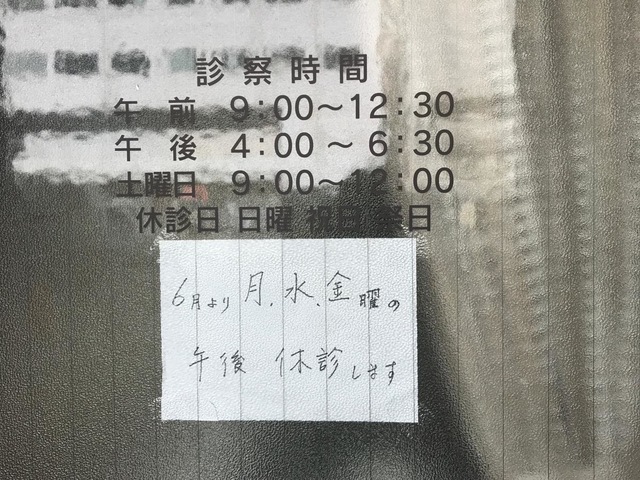 診察時間
午前 9:00〜12:30
午後 4:00〜6:30
土曜日 9:00〜12:00
休診日 日曜 祝日 祭日
6月より月、水、金曜の
午後 休診します